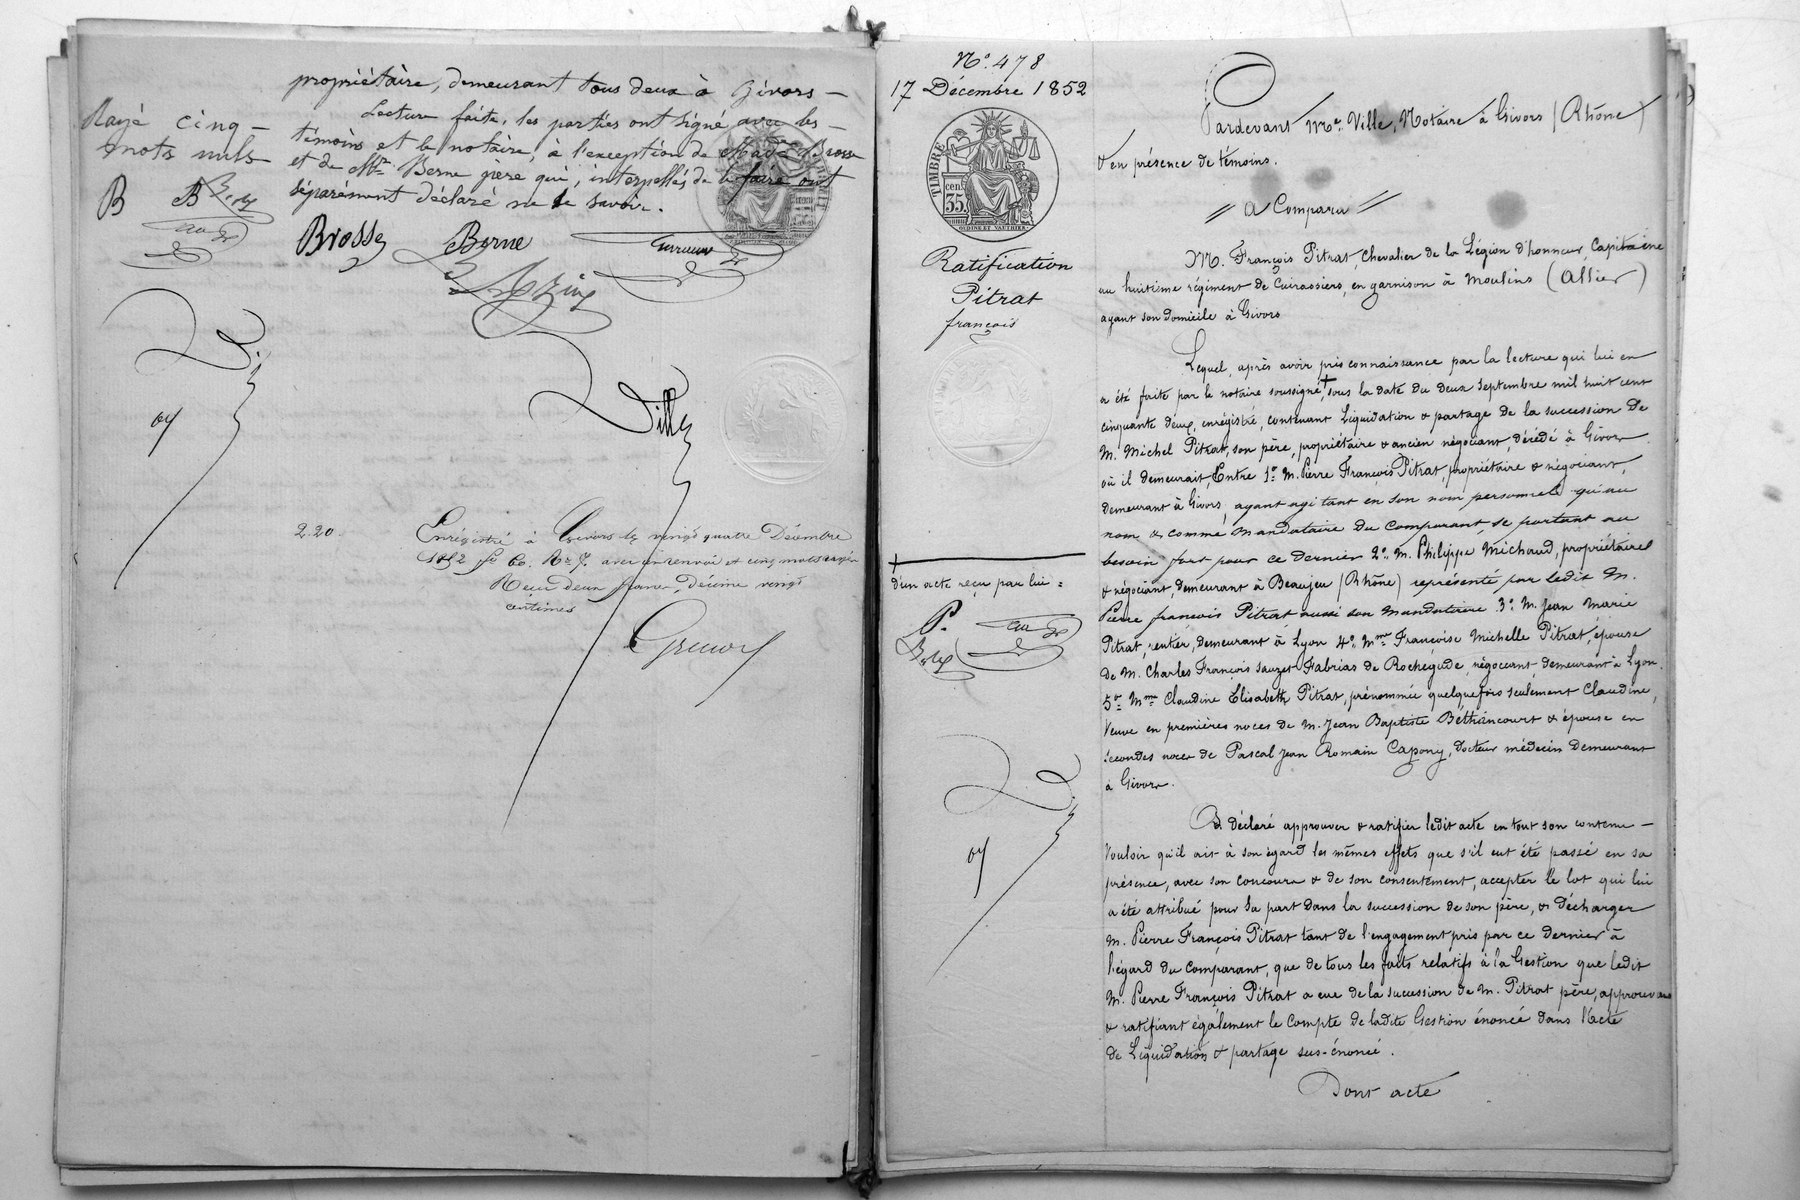 propriétaire, demeurant tous deux à Givors —
Lecture faite, les parties ont signé avec les —
témoins et le notaire, à l'exception de Made Brosse
et de Mr Berne père qui, interpellés de le faire ont
séparément déclaré ne le savoir.
Rayé cinq —
mots nuls
B B
Brosse Berne
Ville
2.20.
Enrégistré à Givors le vingt quatre Décembre
1852 fo 60. Ro 7. avec un renvoi et cinq mots rayés
Reçu deux francs, Décime vingt
centimes
No. 478
17 Décembre 1852
TIMBRE
cen.
35.
OUDINÉ ET VAUTHIER.
Ratification
Pitrat
françois
d'un acte reçu par lui =
P.
Pardevant Me. Ville, Notaire à Givors (Rhône)
& en présence de témoins.
// a Comparu //
M. François Pitrat, Chevalier de la Légion d'honneur, Capitaine
au huitième régiment de Cuirassiers, en garnison à Moulins (Allier)
ayant son domicile à Givors
Lequel, après avoir pris connaissance par la lecture qui lui en
a été faite par le notaire soussigné + sous la date du deux Septembre mil huit cent
cinquante deux, enrégistré, contenant Liquidation & partage de la succession de
M. Michel Pitrat, son père, propriétaire & ancien négociant, décédé à Givors
où il demeurait, Entre 1o M. Pierre François Pitrat, propriétaire & négociant,
demeurant à Givors, ayant agi tant en son nom personnel qu'au
nom & comme mandataire du Comparant, se portant au
besoin fort pour ce dernier 2o. M. Philippe Michaud, propriétaire
& négociant, demeurant à Beaujeu (Rhône) représenté par ledit M.
Pierre françois Pitrat aussi son mandataire 3o. M. Jean Marie
Pitrat, rentier, demeurant à Lyon 4o. Mme Françoise Michelle Pitrat, épouse
de M. Charles François Sauzet-Fabrias de Rochegude, négociant demeurant à Lyon.
5o Mme Claudine Elisabeth Pitrat, prénommée quelquefois seulement Claudine,
Veuve en premières noces de M. Jean Baptiste Bethancourt & épouse en
secondes noces de Pascal Jean Romain Capony, docteur médecin demeurant
à Givors.
A déclaré approuver & ratifier ledit acte en tout son contenu —
Vouloir qu'il ait à son égard les mêmes effets que s'il eut été passé en sa
présence, avec son concours & de son consentement, accepter le lot qui lui
a été attribué pour sa part dans la succession de son père, & décharger
M. Pierre François Pitrat tant de l'engagement pris par ce dernier à
l'égard du comparant, que de tous les faits relatifs à la Gestion que ledit
M. Pierre François Pitrat a eue de la succession de M. Pitrat père, approuvant
& ratifiant également le Compte de ladite Gestion énoncé dans l'acte
de Liquidation & partage sus-énoncé.
Dont acte